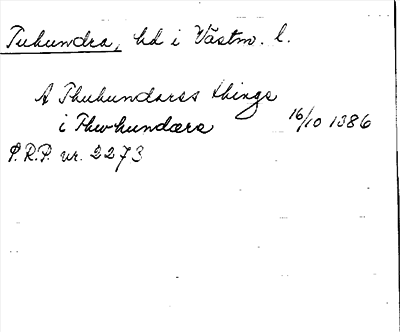 Tuhundra, hd i Västm. l.
A Thuhundares thinge
i Thwhundæra 16/10 1386
P.R.P. nr. 2273